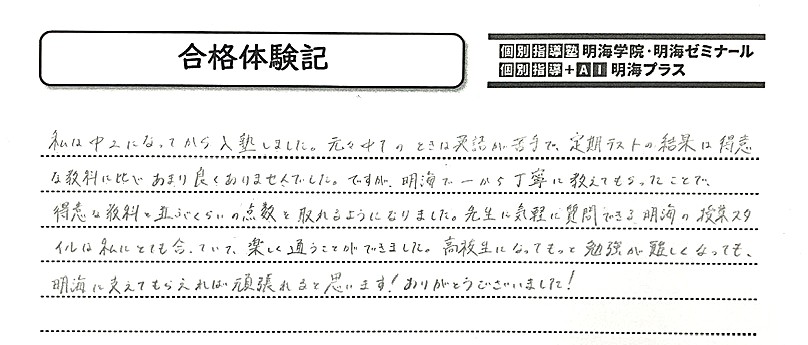 合格体験記
個別指導塾 明海学院・明海ゼミナール
個別指導+AI 明海プラス
私は中2になってから入塾しました。元々中1のときは英語が苦手で、定期テストの結果は得意
な教科に比べあまり良くありませんでした。ですが、明海で一から丁寧に教えてもらったことで、
得意な教科と並ぶくらいの点数を取れるようになりました。先生に気軽に質問できる明海の授業スタ
イルは私にとても合っていて、楽しく通うことができました。高校生になってもっと勉強が難しくなっても、
明海に支えてもらえれば頑張れると思います!ありがとうございました!